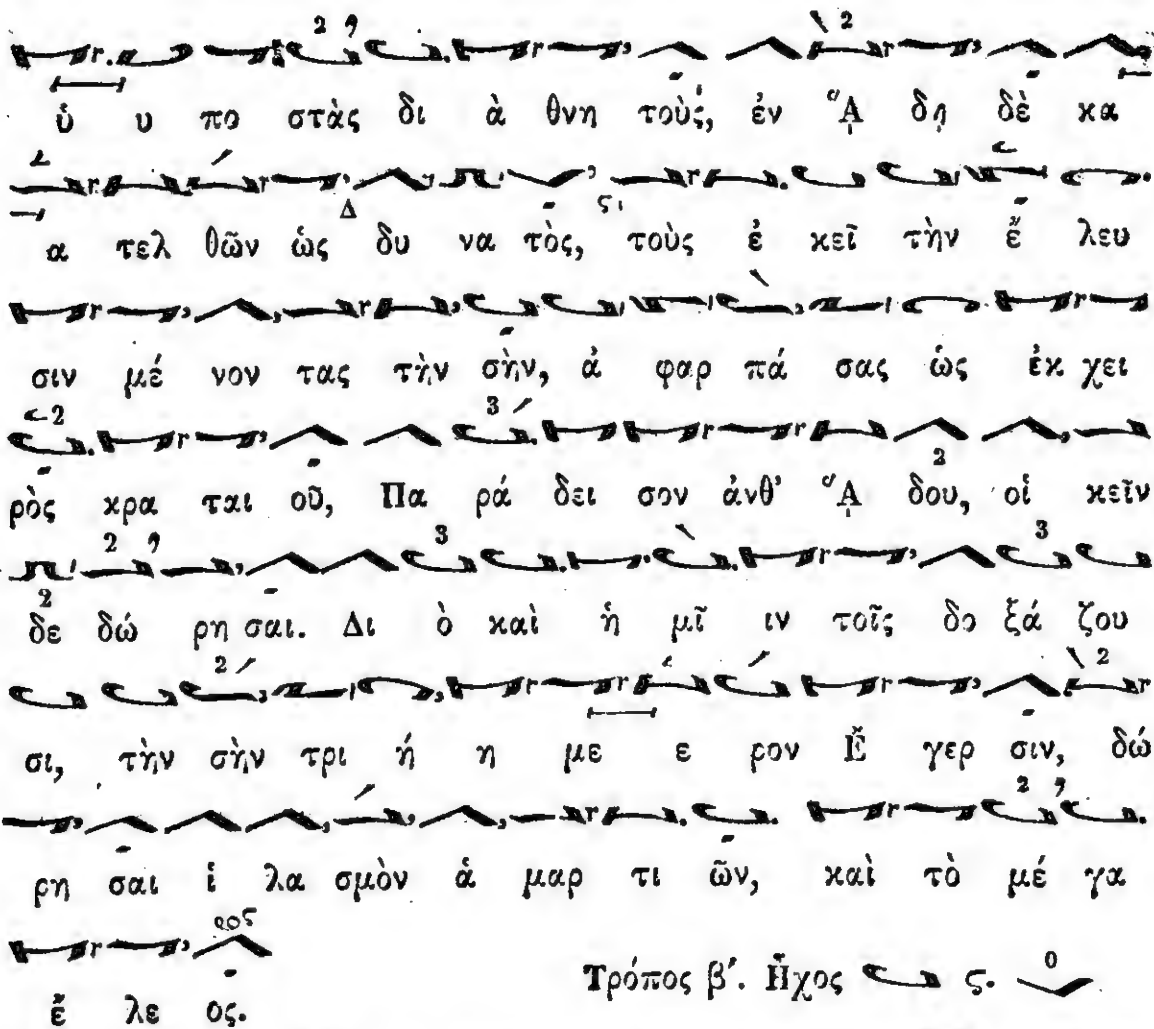 ὑ υ πο στὰς δι ὰ θνη τοὺς, ἐν ᾍ δῃ δὲ κα
α τελ θῶν ὡς δυ να τὸς, τοὺς ἐ κεῖ τὴν ἔ λευ
σιν μέ νον τας τὴν σὴν, ἀ φαρ πά σας ὡς ἐκ χει
ρὸς κρα ται οῦ, Πα ρά δει σον ἀνθ’ ᾍ δου, οἰ κεῖν
δε δώ ρη σαι. Δι ὸ καὶ ἡ μῖ ιν τοῖς δο ξά ζου
σι, τὴν σὴν τρι ή η με ε ρον Ἔ γερ σιν, δώ
ρη σαι ἱ λα σμὸν ἁ μαρ τι ῶν, καὶ τὸ μέ γα
ἔ λε ος.
Τρόπος β΄. Ἦχος